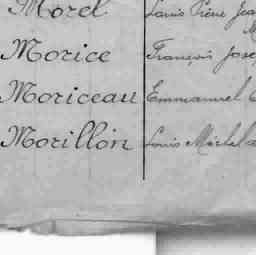 Morel Louis Pierre Jea
Morice François Jose
Moriceau Emmanuel
Morillon Louis Michel